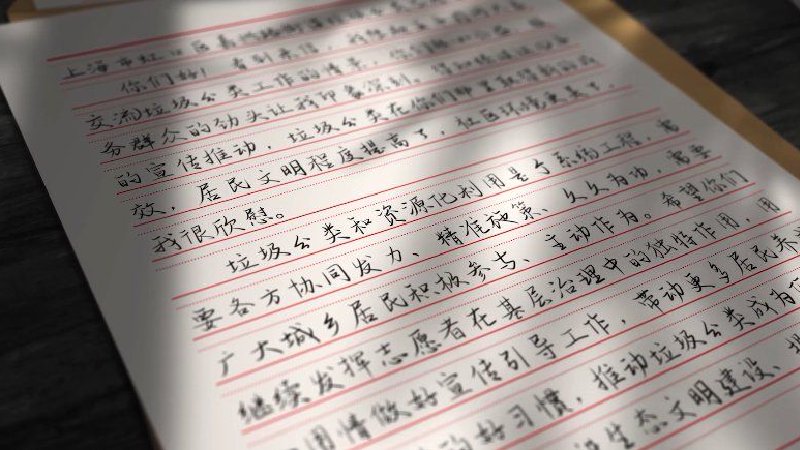 上海市虹口区嘉兴路街道
你们好！看到来信，我想起五年前同大家
交流垃圾分类工作的情景，你们热心公益、服
务群众的劲头让我印象深刻。得知经过你们
的宣传推动，垃圾分类在你们那里取得新的成
效，居民文明程度提高了，社区环境更美了，
我很欣慰。
垃圾分类和资源化利用是个系统工程，需
要各方协同发力、精准施策、久久为功，需要
广大城乡居民积极参与、主动作为。希望你们
继续发挥志愿者在基层治理中的独特作用，用
用情做好宣传引导工作，带动更多居民养
的好习惯，推动垃圾分类成为
生态文明建设、